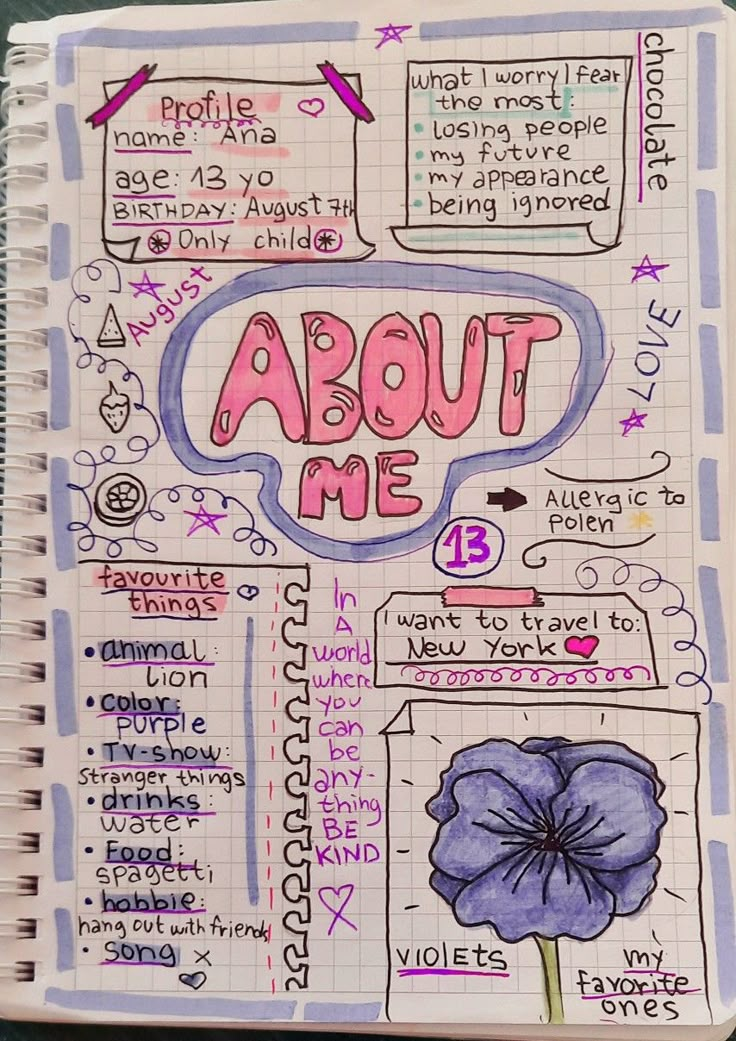 Profile
name: Ana
age: 13 yo
BIRTHDAY: August 7th
Only child
what I worry/fear
the most:
• losing people
• my future
• my appearance
• being ignored
chocolate
August
ABOUT
ME
3107
Allergic to
Polen
13
favourite
things
• animal:
Lion
• color:
purple
• TV-show:
Stranger things
• drinks:
water
• Food:
spagetti
• hobbie:
hang out with friends
• song x
In
A
world
where
you
can
be
any-
thing
BE
KIND
I want to travel to:
New York
VIOLETS
my
favorite
ones